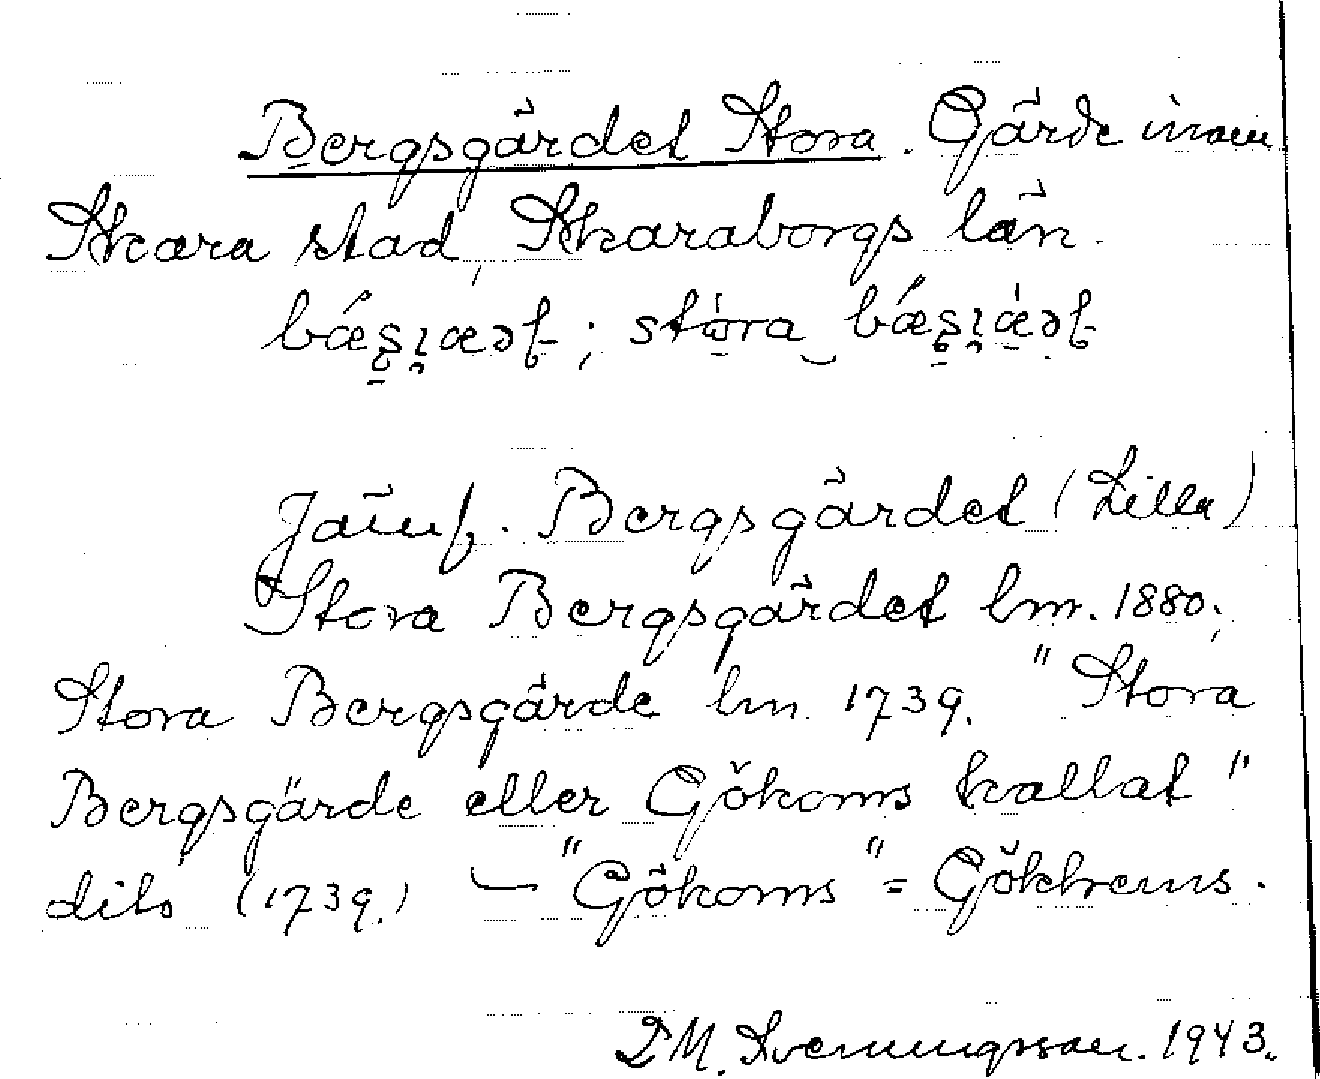 Bergsgärdet Stora. Gärde inom
Skara stad, Skaraborgs län.
stora
Jämf. Bergsgärdet (Lilla)
Stora Bergsgärdet lm. 1880;
Stora Bergsgärde lm 1739. "Stora
Bergsgärde eller Gökoms kallat"
dito (1739.) — "Gökoms" = Gökhems.
Svenningsson. 1943.